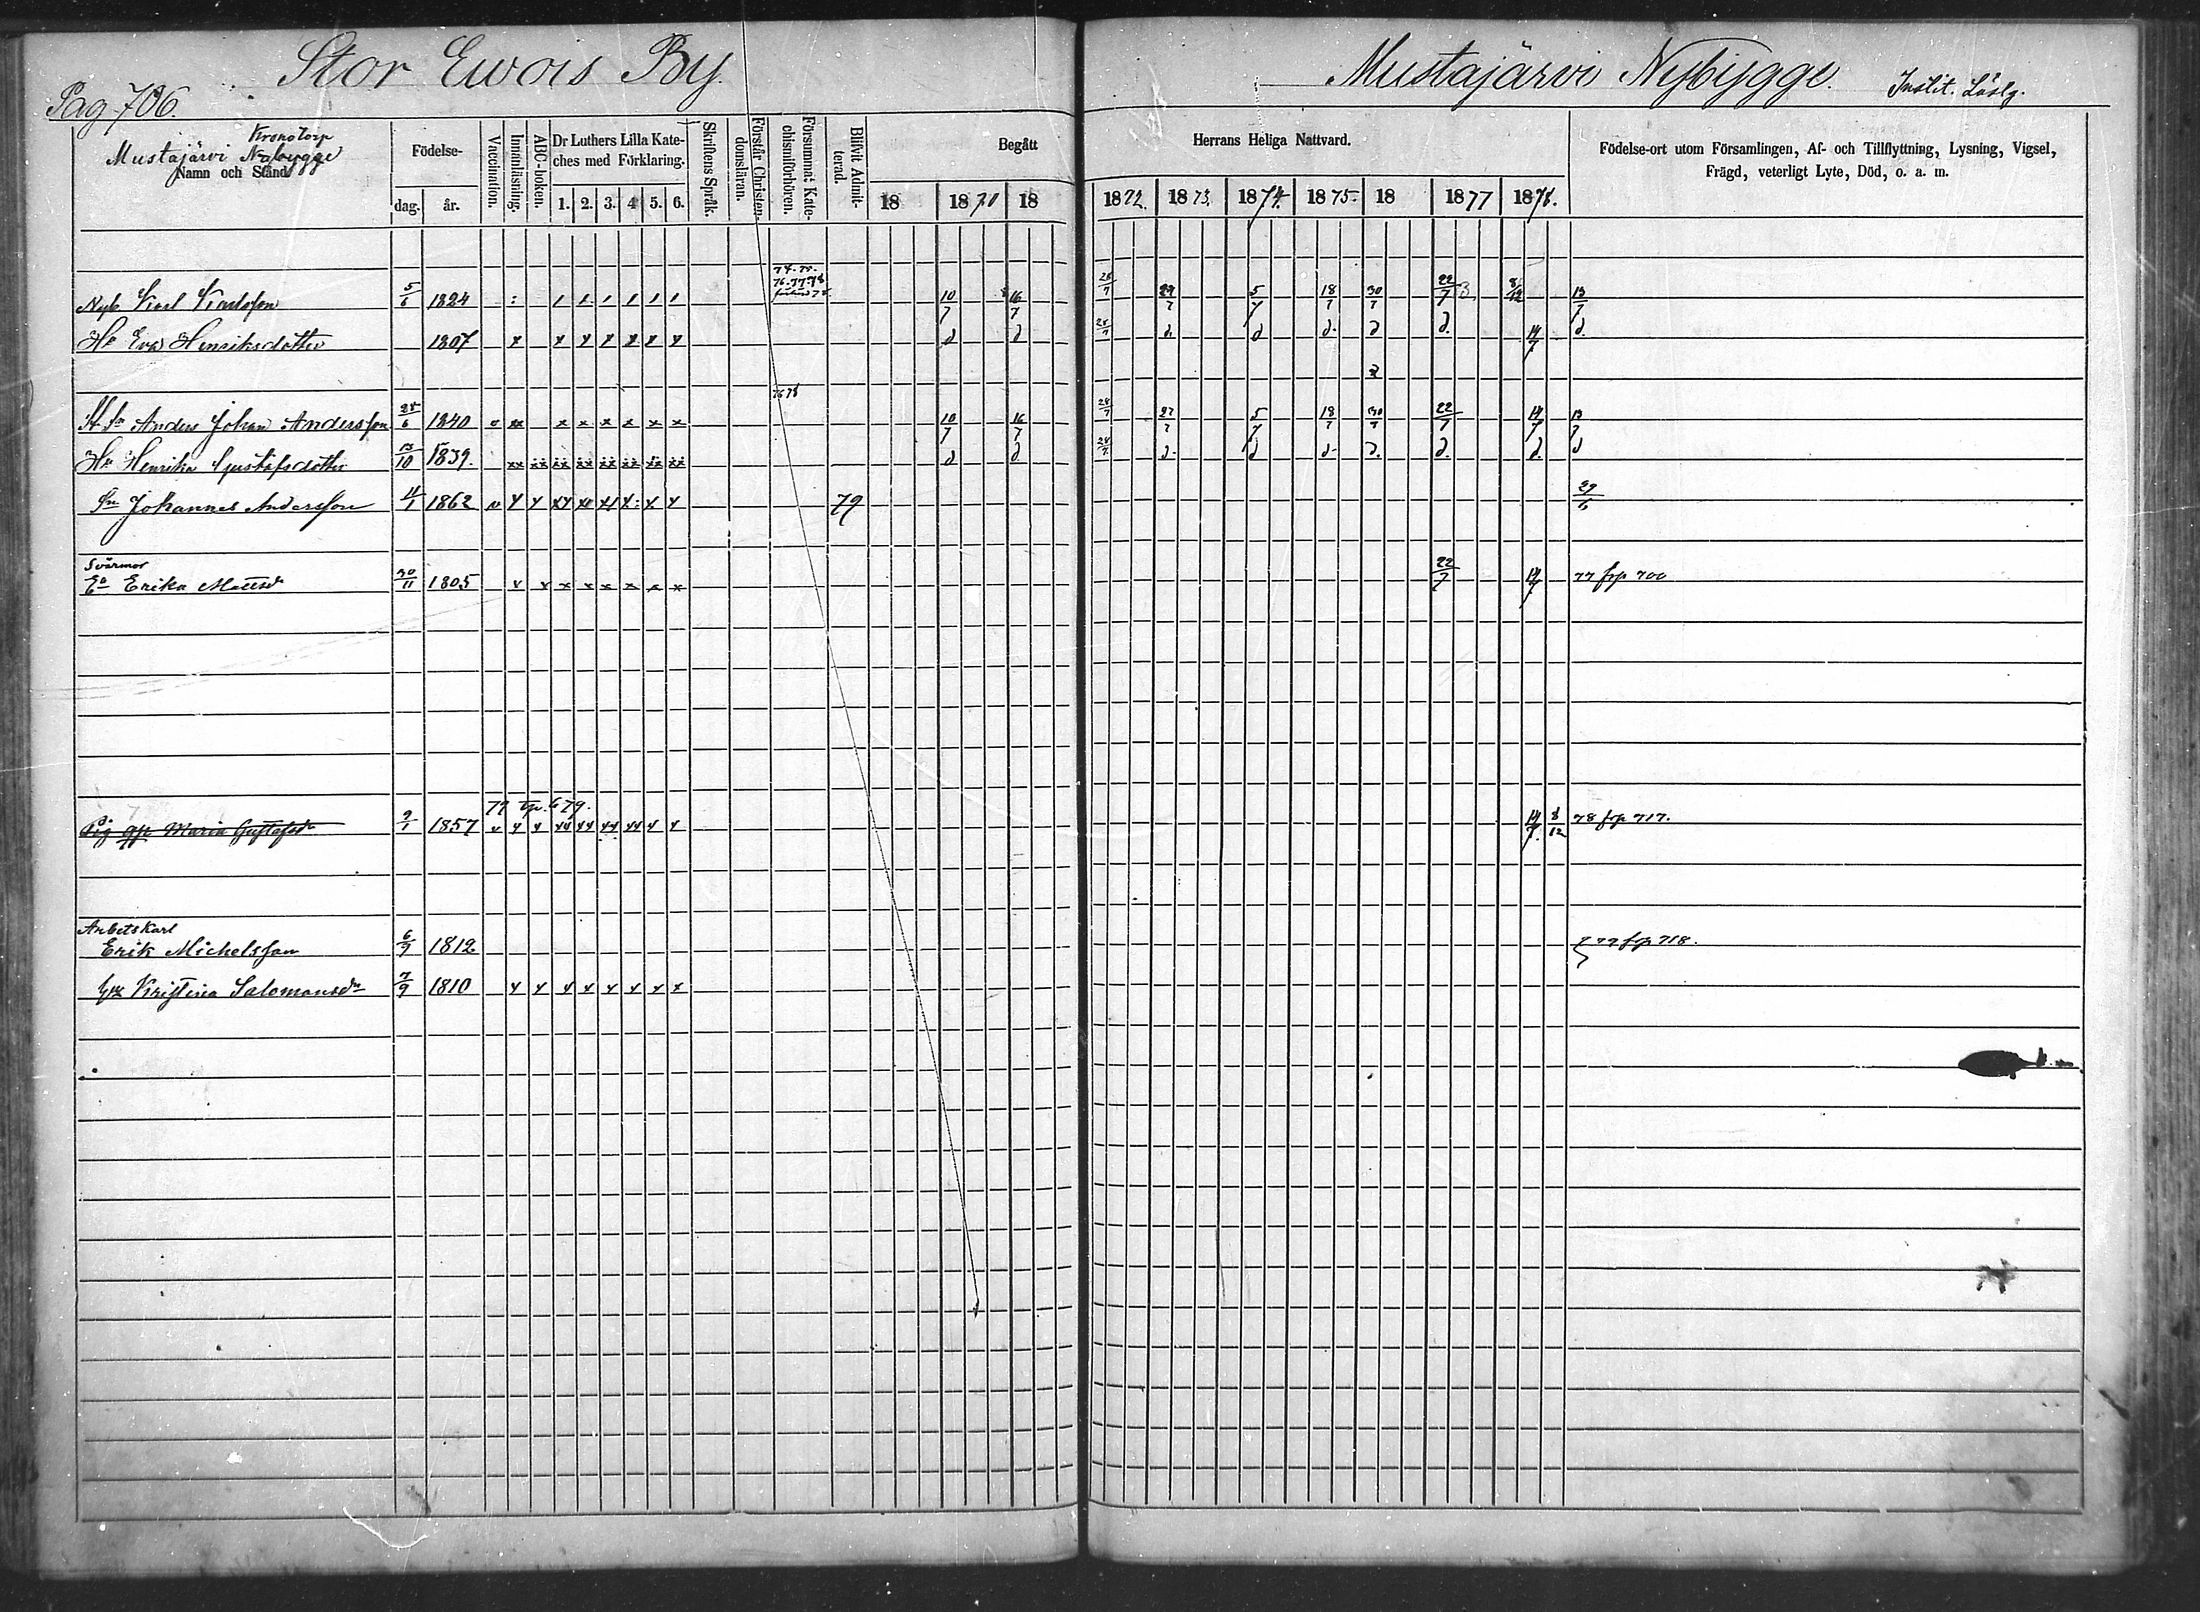 Stor Ewois By.
Mustajärvi Nybygge.
Pag 706.
Kronotorp
Mustajärvi Nybygge
Namn och Stånd.
Födelse-
dag. år.
Vaccination.
Innanläsning.
ABC-boken.
Dr Luthers Lilla Kate-
ches med Förklaring.
1. 2. 3. 4 5. 6.
Skriftens Språk.
Förstår Christen-
domsläran.
Försummat Kate-
chismiförhören.
Blifvit Admit-
terad.
Begått
18 1870 18
Herrans Heliga Nattvard.
1872. 1873. 1874. 1875. 18 1877 1878.
Födelse-ort utom Församlingen, Af- och Tillflyttning, Lysning, Vigsel,
Frägd, veterligt Lyte, Död, o. a. m.
Nyb Karl Karlsson 5/6 1824 10/7 16/7 28/7 27/7 5/7 18/7 30/7 22/7 8/12 13/7
Hu Eva Henriksdotter 1807 d d 28/7 d. d d. d d. 14/7 d.
76 78
Anders Johan Andersson 25/6 1840 10/7 16/7 28/7 27/7 5/7 18/7 30/7 22/7 14/7 13/7
Hu Henrika Gustafsdotter 13/10 1839. d d 28/7 d. d d. d. d. d. d
Sn Johannes Andersson 4/1 1862 79
Svärmor
Ea Erika Mattsdr 30/11 1805 22/7 14/7 77 frp 700
77 tp. 679.
Pig Maria Gustafsdr 9/1 1857 14/7 8/12 78 frp 717.
Arbetskarl
Erik Michelsson 6/9 1812 77 frp 718.
Kristina Salomonsdr 7/9 1810